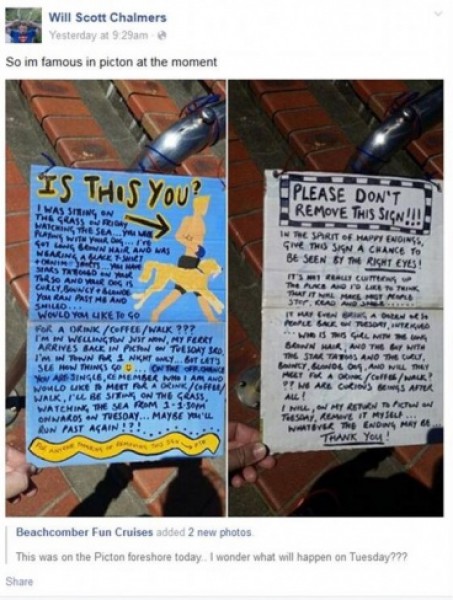 Will Scott Chalmers
Yesterday at 9:29am
So im famous in picton at the moment
"IS THIS YOU?
I WAS SITTING ON
THE GRASS ON FRIDAY
WATCHING THE SEA... YOU WERE
PLAYING WITH YOUR DOG... I'VE
GOT LONG BROWN HAIR AND WAS
WEARING A BLACK T-SHIRT
+ DENIM SHORTS... YOU HAVE
STARS TATTOOED ON YOUR
TORSO AND YOUR DOG IS
CURLY, BOUNCY + BLONDE
YOU RAN PAST ME AND
SMILED...
WOULD YOU LIKE TO GO
FOR A DRINK / COFFEE / WALK ???
I'M IN WELLINGTON JUST NOW, MY FERRY
ARRIVES BACK IN PICTON ON TUESDAY 3RD
I'M IN TOWN FOR 1 NIGHT ONLY... BUT LET'S
SEE HOW THINGS GO ... ON THE OFF-CHANCE
YOU ARE SINGLE, REMEMBER WHO I AM AND
WOULD LIKE TO MEET FOR A DRINK / COFFEE /
WALK, I'LL BE SITTING ON THE GRASS,
WATCHING THE SEA FROM 1-1:30PM
ONWARDS ON TUESDAY... MAYBE YOU'LL
RUN PAST AGAIN !?!
OF REMOVING THIS
PLEASE DON'T
REMOVE THIS SIGN!!!
IN THE SPIRIT OF HAPPY ENDINGS,
GIVE THIS SIGN A CHANCE TO
BE SEEN BY THE RIGHT EYES!
IT'S NOT REALLY CLUTTERING UP
THE PLACE AND I'D LIKE TO THINK
THAT IT WILL MAKE MOST PEOPLE
STOP, READ AND SMILE.....
IT MAY EVEN BRING A DOZEN OR SO
PEOPLE BACK ON TUESDAY, INTRIGUED
... WHO IS THIS GIRL WITH THE LONG
BROWN HAIR, AND THE BOY WITH
THE STAR TATTOOS AND THE CURLY,
BOUNCY, BLONDE DOG, AND WILL THEY
MEET FOR A DRINK / COFFEE / WALK ?
?? WE ARE CURIOUS BEINGS AFTER
ALL!
I WILL, ON MY RETURN TO PICTON ON
TUESDAY, REMOVE IT MYSELF...
WHATEVER THE ENDING MAY BE
THANK YOU!
Beachcomber Fun Cruises added 2 new photos.
This was on the Picton foreshore today.. I wonder what will happen on Tuesday???
Share